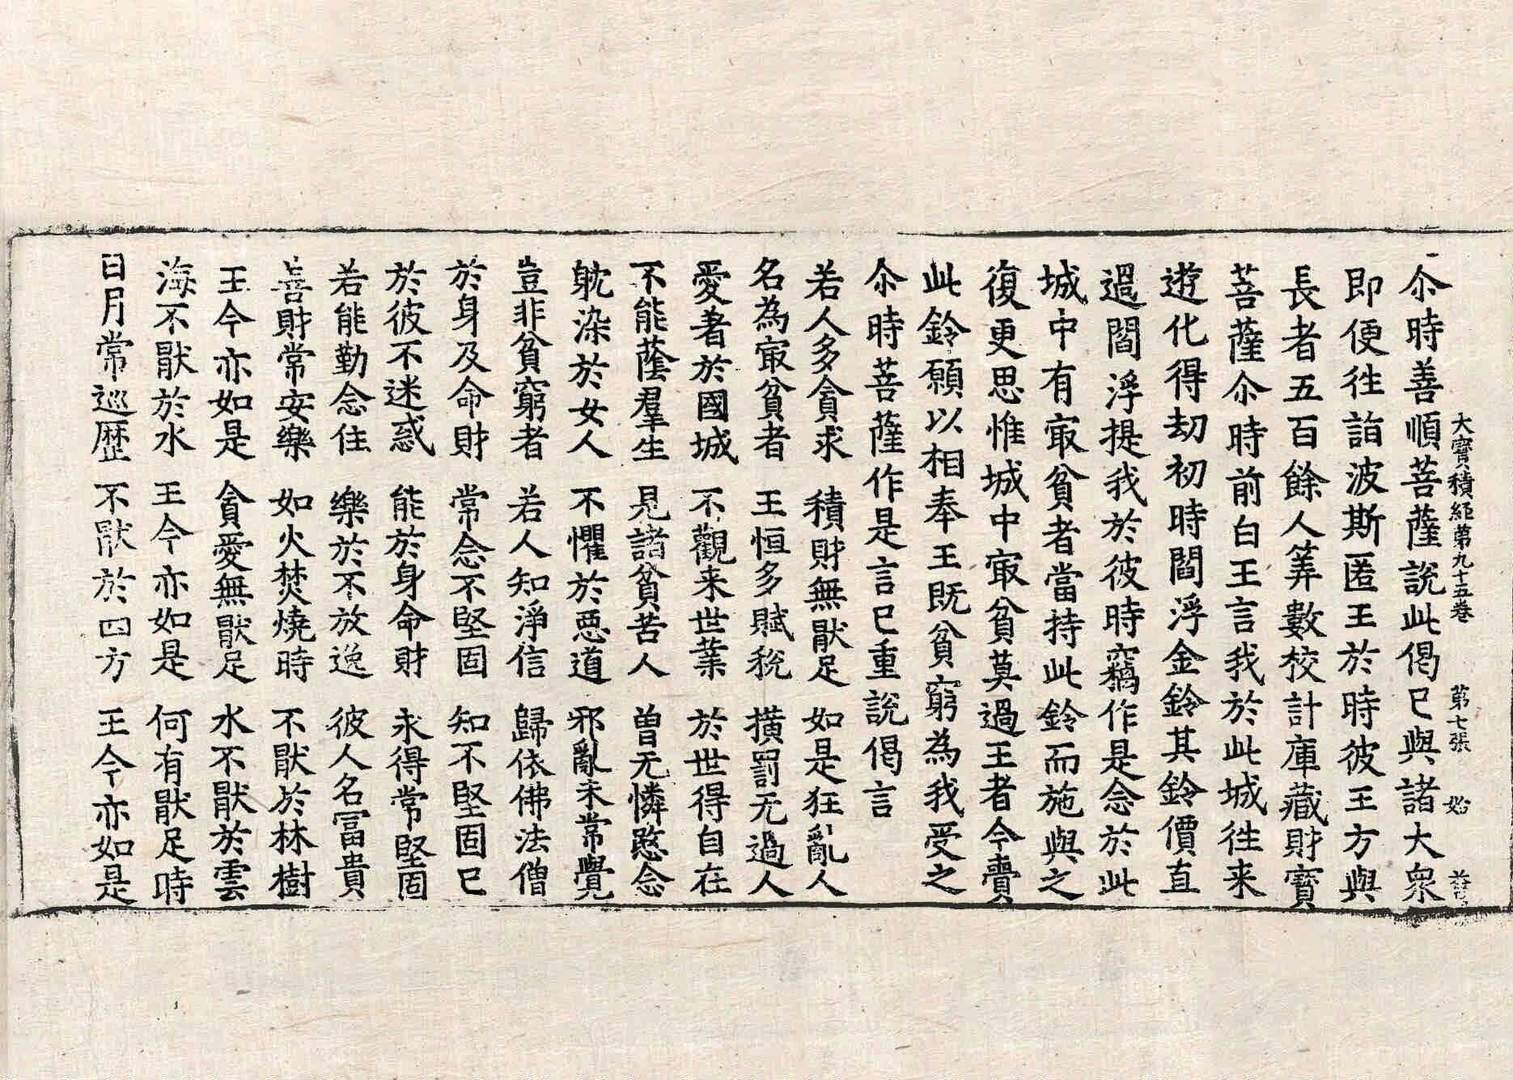 大寶積經第九十五卷 第七張 始
尒時善順菩薩說此偈已與諸大衆
即便往詣波斯匿王於時彼王方與
長者五百餘人筭數校計庫藏財寶
菩薩尒時前白王言我於此城往来
遊化得劫初時閻浮金鈴其鈴價直
過閻浮提我於彼時竊作是念於此
城中有㝡貧者當持此鈴而施與之
復更思惟城中㝡貧莫過王者今賷
此鈴願以相奉王既貧窮為我受之
尒時菩薩作是言已重說偈言
若人多貪求 積財無猒足 如是狂亂人
名為㝡貧者 王恒多賦稅 横罰无過人
愛著於國城 不觀来世業 於世得自在
不能蔭羣生 見諸貧苦人 曾无憐愍念
躭染於女人 不懼於惡道 邪亂未常覺
豈非貧窮者 若人知淨信 歸依佛法僧
於身及命財 常念不堅固 知不堅固已
於彼不迷惑 能於身命財 永得常堅固
若能勤念住 樂於不放逸 彼人名冨貴
善財常安樂 如火焚燒時 不猒於林樹
王今亦如是 貪愛無猒足 水不猒於雲
海不猒於水 王今亦如是 何有猒足時
日月常巡歷 不猒於四方 王今亦如是